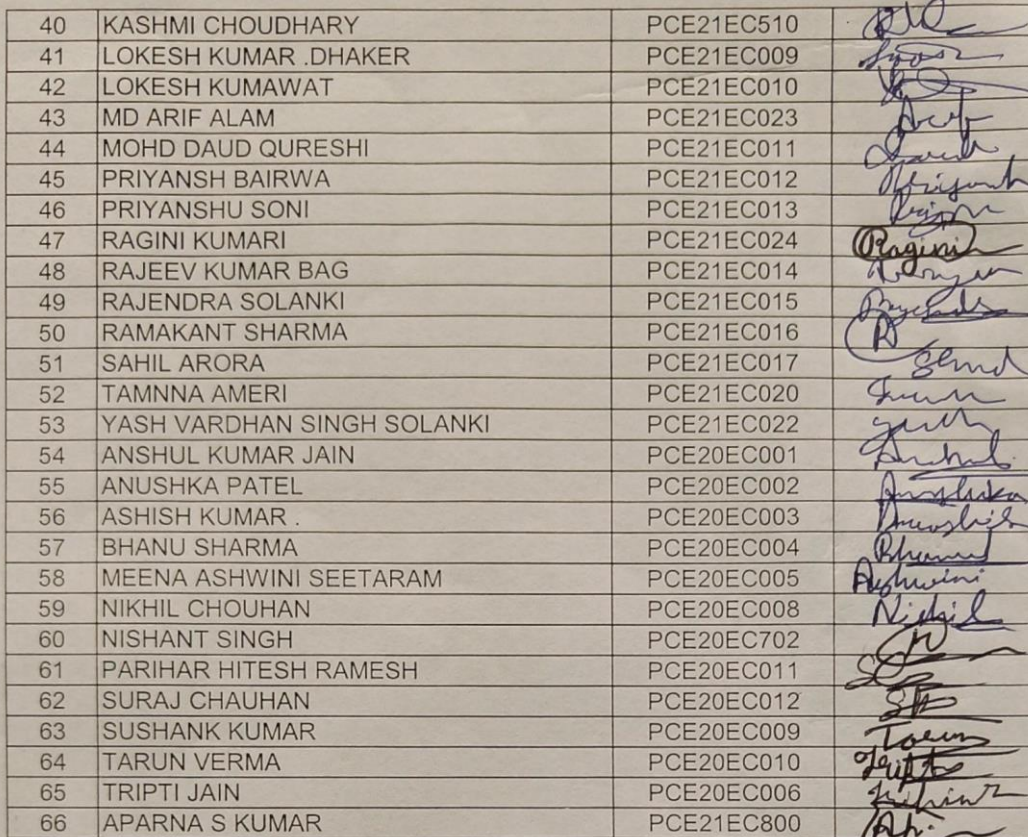 40 KASHMI CHOUDHARY PCE21EC510
41 LOKESH KUMAR .DHAKER PCE21EC009
42 LOKESH KUMAWAT PCE21EC010
43 MD ARIF ALAM PCE21EC023
44 MOHD DAUD QURESHI PCE21EC011
45 PRIYANSH BAIRWA PCE21EC012
46 PRIYANSHU SONI PCE21EC013
47 RAGINI KUMARI PCE21EC024 Ragini
48 RAJEEV KUMAR BAG PCE21EC014
49 RAJENDRA SOLANKI PCE21EC015
50 RAMAKANT SHARMA PCE21EC016
51 SAHIL ARORA PCE21EC017
52 TAMNNA AMERI PCE21EC020
53 YASH VARDHAN SINGH SOLANKI PCE21EC022
54 ANSHUL KUMAR JAIN PCE20EC001
55 ANUSHKA PATEL PCE20EC002 Anushka
56 ASHISH KUMAR . PCE20EC003
57 BHANU SHARMA PCE20EC004
58 MEENA ASHWINI SEETARAM PCE20EC005 Ashwini
59 NIKHIL CHOUHAN PCE20EC008 Nikhil
60 NISHANT SINGH PCE20EC702
61 PARIHAR HITESH RAMESH PCE20EC011
62 SURAJ CHAUHAN PCE20EC012
63 SUSHANK KUMAR PCE20EC009
64 TARUN VERMA PCE20EC010
65 TRIPTI JAIN PCE20EC006
66 APARNA S KUMAR PCE21EC800